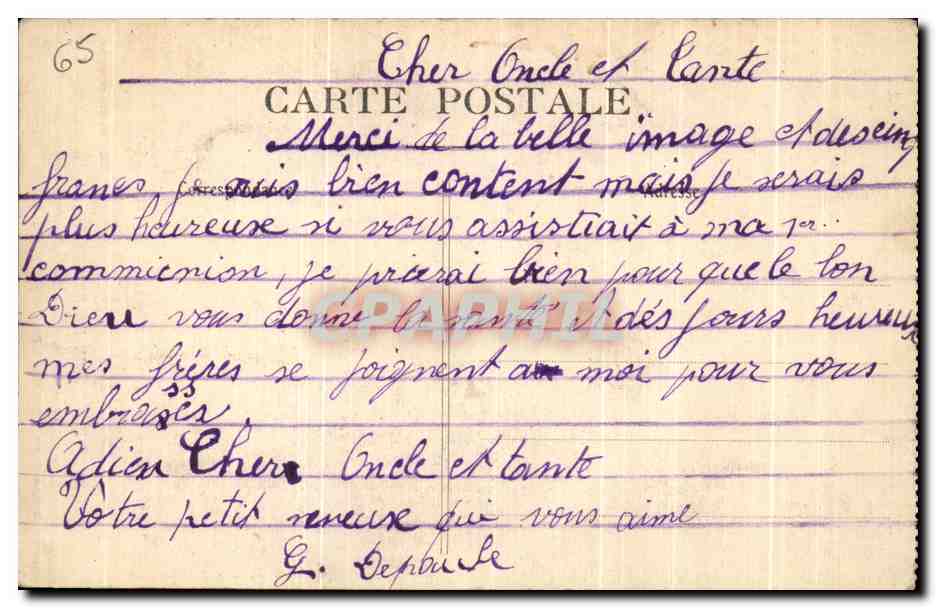 65
Cher Oncle et Tante
CARTE POSTALE
Merci de la belle image et des cinq
francs, je suis bien content mais je serais
Correspondance Adresse
plus heureuse si vous assistiait à ma 1er
commienion, je prierai bien pour que le bon
Dieu vous donne la santé et dés jours heureux
mes fréres se joignent a moi pour vous
embrasses.
Adieu Cher Oncle et tante
Vôtre petit neneux qui vous aime
G. Depaule
CPAPHIL